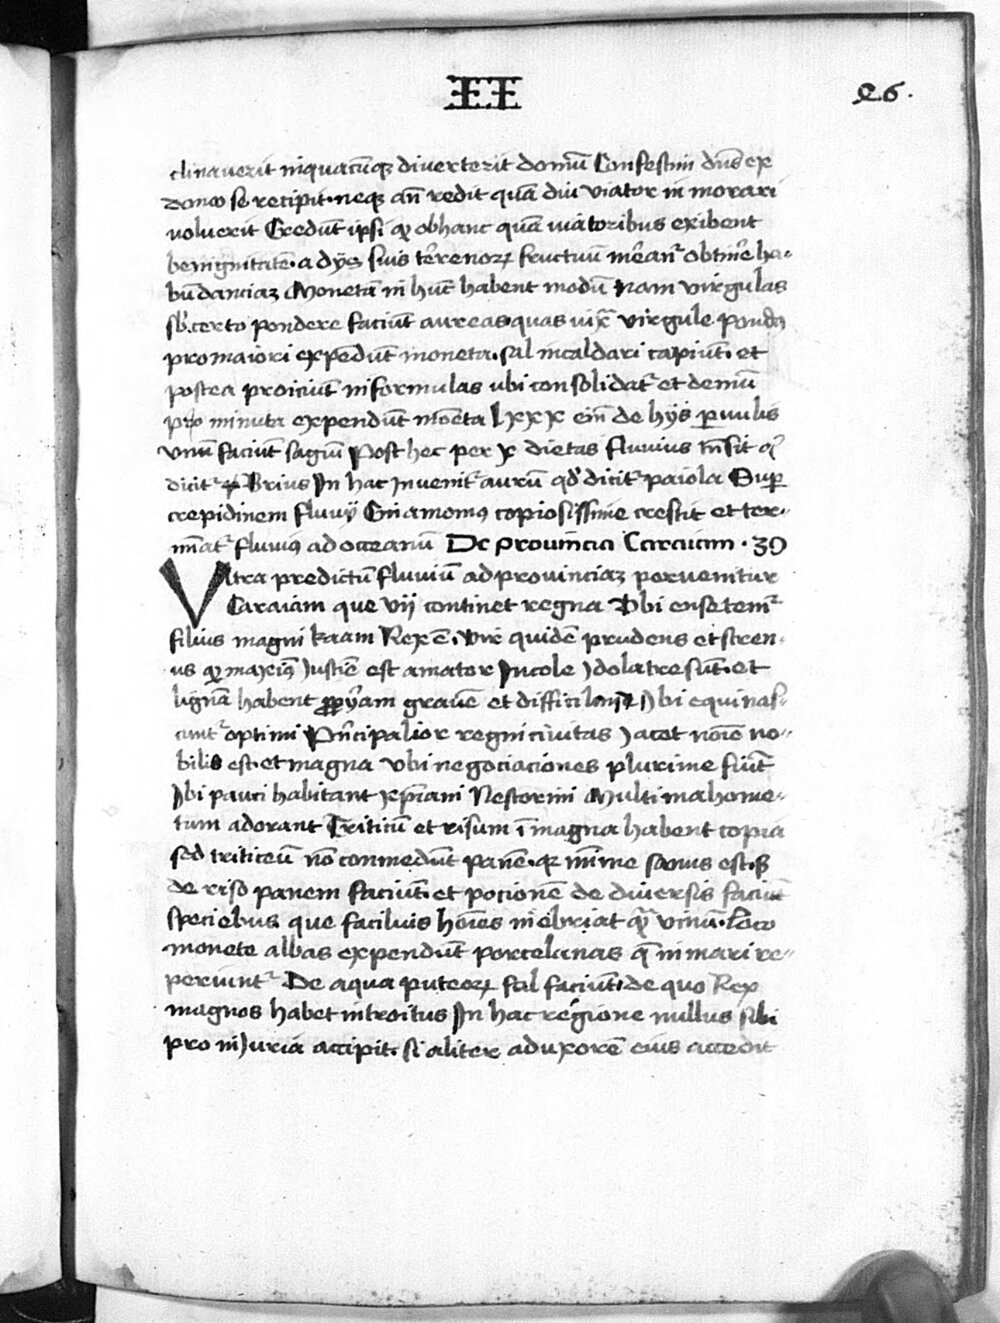 II
26.
clinaverit in quacūq; diverterit domū Confestim dn̄s ex
domo se recipit. neq; an̄ redit quā diu viator in morari
voluerit Credūt ipsi qꝫ ob hanc quā viatoribus exibent
benignitatē. a dijs suis terrenoꝝ fructuū obtinēre ha-
bundanciaꝫ Monetā in hūc habent modū Nam virgulas
sb' certo pondere faciūt aureas quas virgule pondꝰ
pro maiori expendūt moneta. sal in caldari capiūt. et
postea proiciūt in formulas ubi consolidat' et demū
pro minuta expendūt monēta Lxxx eīm de hijs parvulis
unū faciūt sagiū Post hec per x dietas fluvius
dicit' Brius In hac Invenit' aurū qd' dicit' paiola Suꝑ
crepidinem fluvij Cinamomꝰ copiosissime crescit et ter-
minat' fluviꝰ ad occeanū De provincia Caraiam . 39
Vltra predictū fluviū ad provinciaꝫ pervenitur
Caraiam que vij continet regna Vbi ensetem'
filius magni kaam Rex ē. vir quidē prudens et stren-
us qꝫ maxiēs Justicie est amator Incole ydolatre sūt. et
lignā habent ꝓpriam gravē et difficilem Ibi equi nas-
cunt' optimi Principalior regni civitas Jacot noīe no-
bilis est. et magna vbi negociaciones plurime fiūt
Ibi pauci habitant xpīani Nestorini Multi mahome-
tum adorant Triticū et risum ī magna habent copia
sed triticeū nō comedūt panē. qꝛ minīme sanus est. sꝫ
de riso panem faciūt. et pocionē de diversis faciūt
speciebus que facilius hoīes inebriat qꝫ vinū. Loco
monete albas expendūt porcelanas q̄ in mari re-
periunt' De aqua puteoꝝ sal faciūt. de quo Rex
magnos habet introitus In hac regione nullus sibi
pro inJuria accipit. si aliter ad uxorē eius accedit